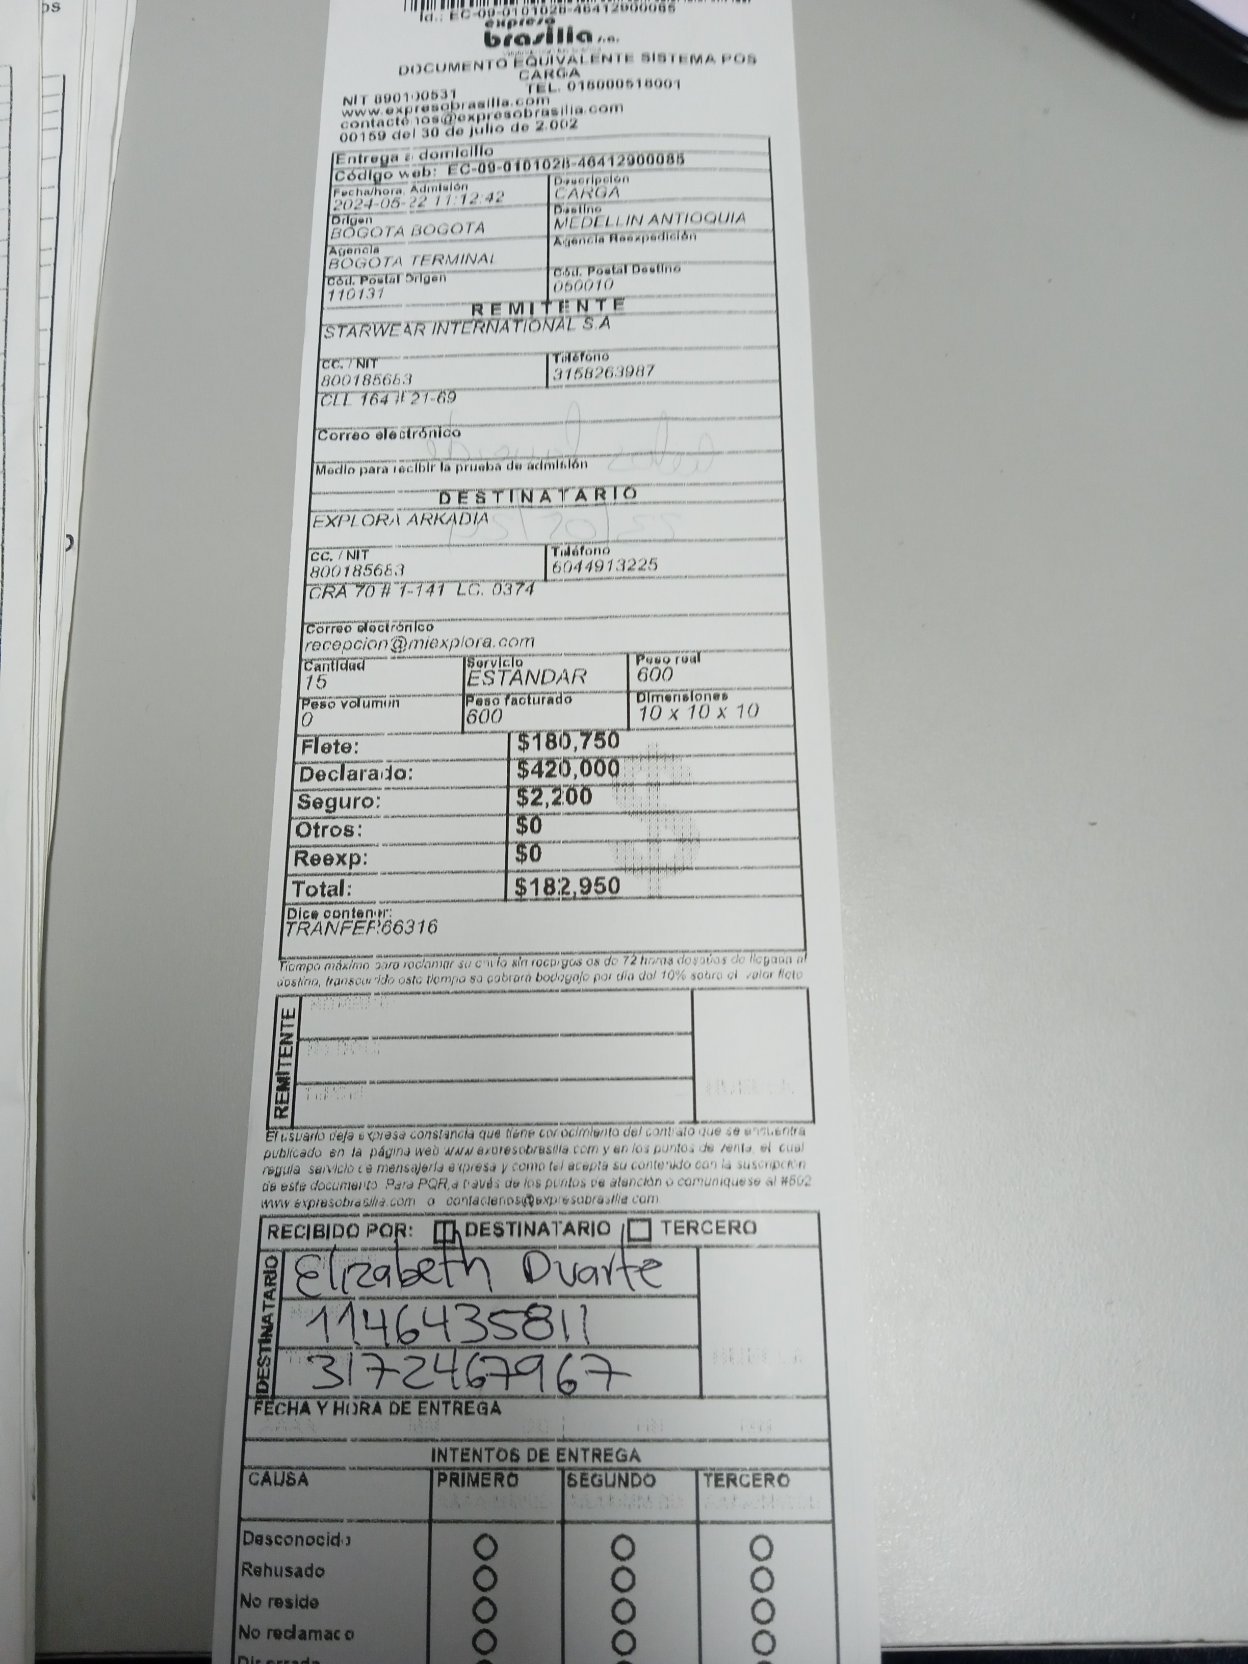 Id.: EC-09-0101028-46412900085
expreso
brasilia s.a.
DOCUMENTO EQUIVALENTE SISTEMA POS
CARGA
NIT 890100531 TEL. 018000518001
www.expresobrasilia.com
contactenos@expresobrasilia.com
00159 del 30 de julio de 2.002
Entrega a domicilio
Código web: EC-09-0101028-46412900085
Fecha/hora Admisión Descripción
2024-05-22 11:12:42 CARGA
Origen Destino
BOGOTA BOGOTA MEDELLIN ANTIOQUIA
Agencia Agencia Reexpedición
BOGOTA TERMINAL
Cód. Postal Origen Cód. Postal Destino
110131 050010
REMITENTE
STARWEAR INTERNATIONAL S.A
CC. / NIT Teléfono
800185683 3158263987
CLL 164 # 21-69
Correo electrónico
Medio para recibir la prueba de admisión
DESTINATARIO
EXPLORA ARKADIA
CC. / NIT Teléfono
800185683 6044913225
CRA 70 # 1-141 LC. 0374
Correo electrónico
recepcion@miexplora.com
Cantidad Servicio Peso real
15 ESTANDAR 600
Peso volumen Peso facturado Dimensiones
0 600 10 x 10 x 10
Flete: $180,750
Declarado: $420,000
Seguro: $2,200
Otros: $0
Reexp: $0
Total: $182,950
Dice contener:
TRANFER66316
Tiempo máximo para reclamar su envío sin recargos es de 72 horas después de llegada al
destino, transcurrido este tiempo se cobrará bodegaje por día del 10% sobre el valor flete
REMITENTE
El usuario deja expresa constancia que tiene conocimiento del contrato que se encuentra
publicado en la página web www.expresobrasilia.com y en los puntos de venta, el cual
regula servicio de mensajería expresa y como tal acepta su contenido con la suscripción
de este documento. Para PQR a través de los puntos de atención o comuniquese al #502
www.expresobrasilia.com o contactenos@expresobrasilia.com
RECIBIDO POR: DESTINATARIO TERCERO
DESTINATARIO
Elizabeth Duarte
1146435811
3172467967
FECHA Y HORA DE ENTREGA
INTENTOS DE ENTREGA
CAUSA PRIMERO SEGUNDO TERCERO
Desconocido
Rehusado
No reside
No reclamado